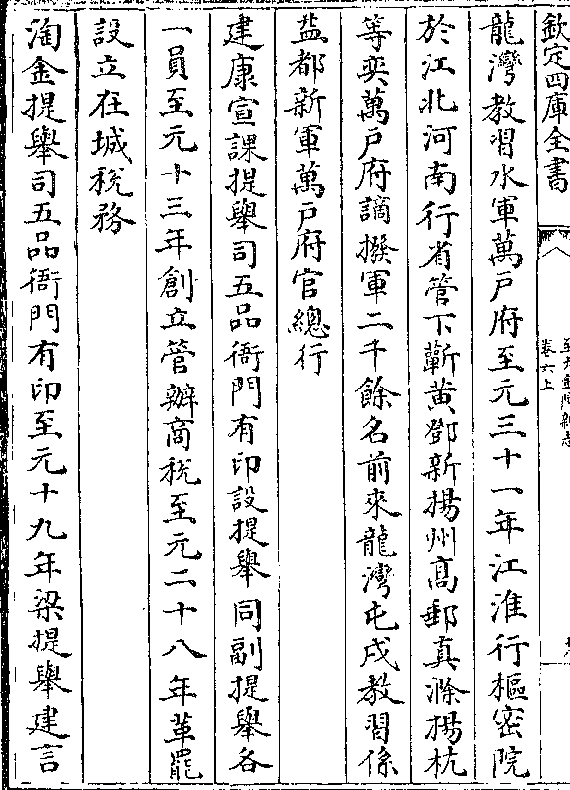 欽定四庫全書
至大金陵新志
卷六上
龍灣教習水軍萬戸府至元三十一年江淮行樞密院
於江北河南行省管下蘄黄鄧新揚州髙郵真滁楊杭
等奕萬戸府謫撥軍二千餘名前來龍灣屯戍教習係
盐都新軍萬戸府官總行
建康宣課提舉司五品衙門有印設提舉同副提舉各
一員至元十三年創立管辦商税至元二十八年革罷
設立在城税務
淘金提舉司五品衙門有印至元十九年梁提舉建言